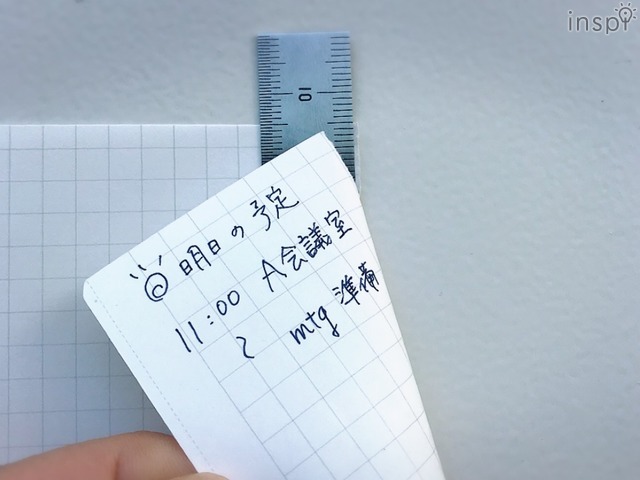 inspi
10
◎ 明日の予定
11:00 A会議室
〜 mtg 準備